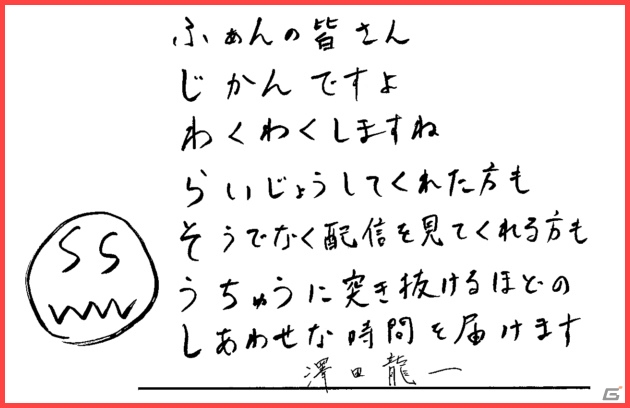 ふぁんの皆さん
じかんですよ
わくわくしますね
らいじょうしてくれた方も
そうでなく配信を見てくれる方も
うちゅうに突き抜けるほどの
しあわせな時間を届けます
澤田龍一